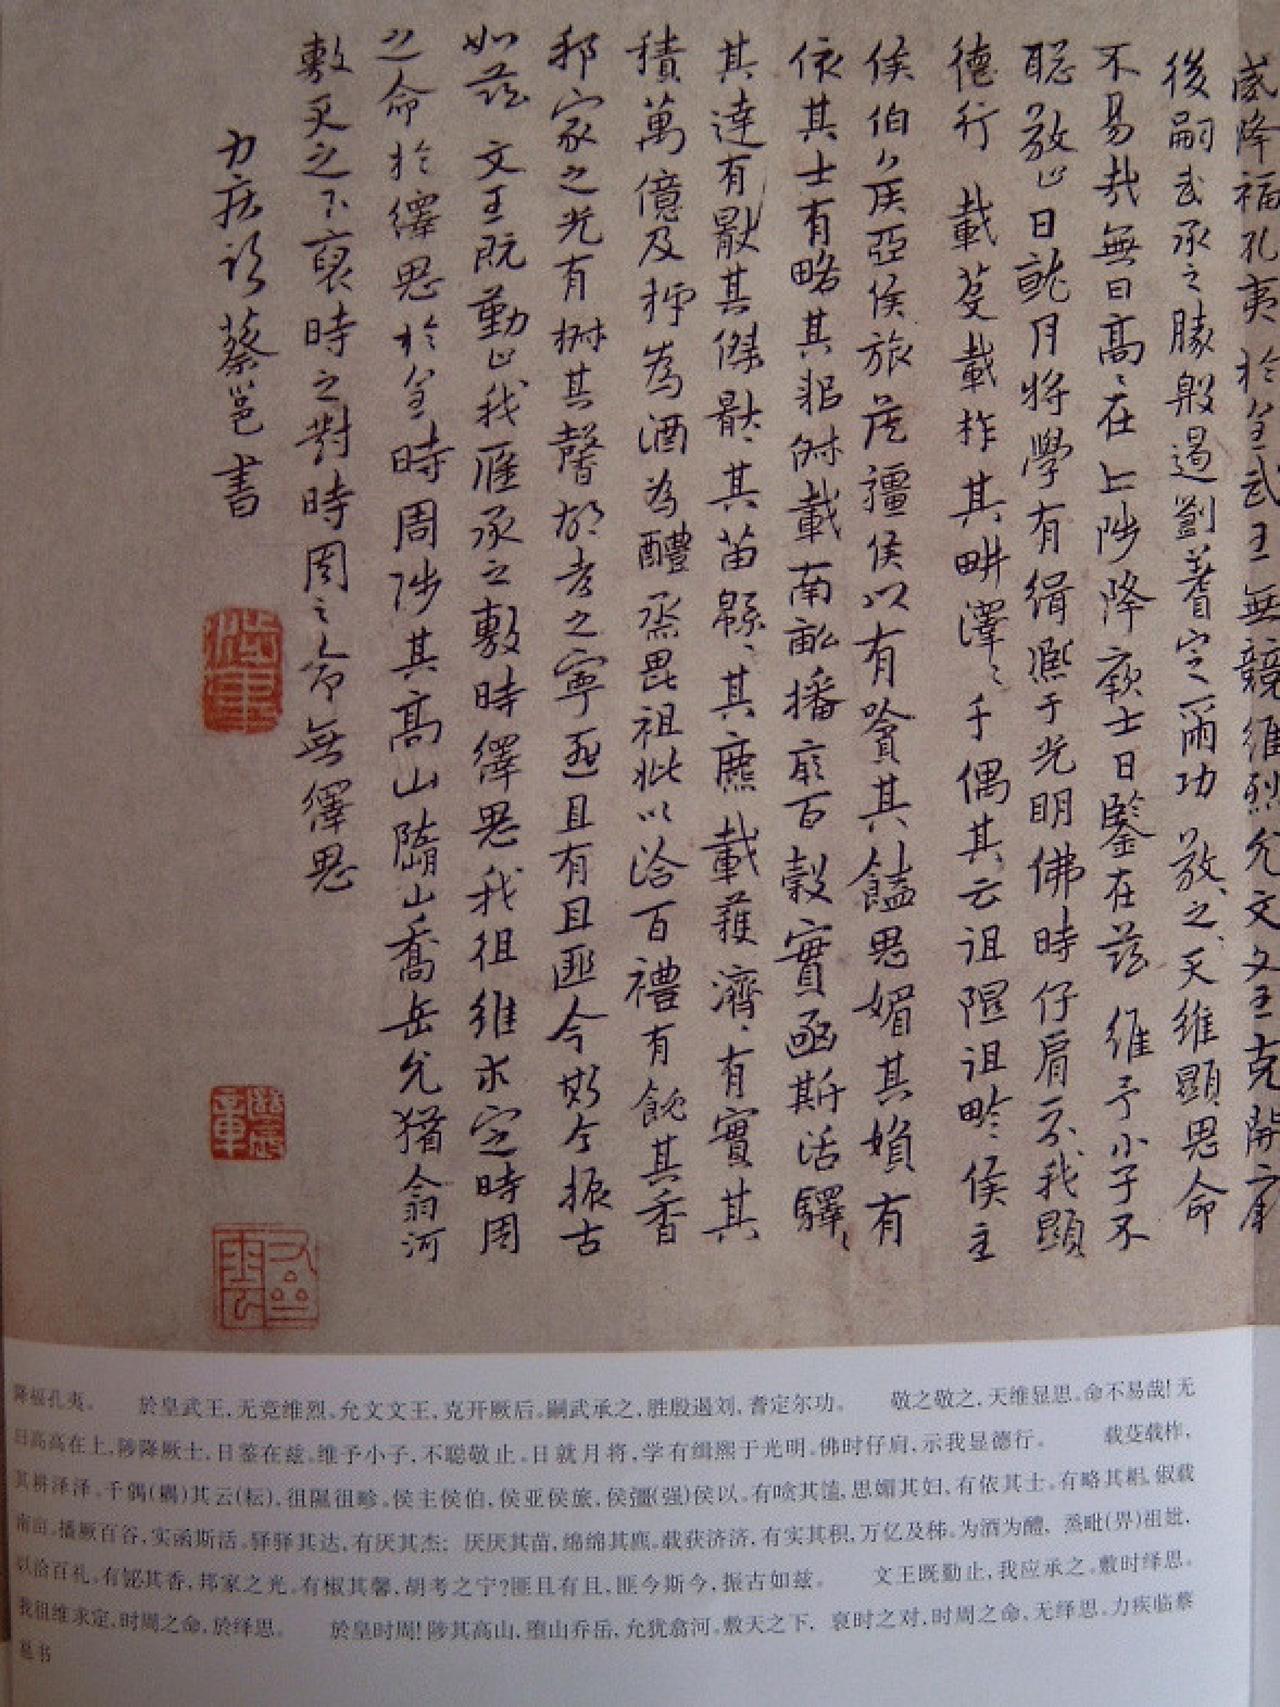 威降福孔夷 於皇武王無競維烈允文文王克開厥
後嗣武承之勝殷遏劉耆定爾功 敬之之天維顯思命
不易哉無曰高在上陟降厥士日鑒在茲 維予小子不
聡敬止日就月将學有緝熈于光明佛時仔肩示我顯
德行 載芟載柞其畊澤〻千偶其云徂隰徂畛侯主
侯伯侯亞侯旅侯彊侯以有噴其饁思媚其婦有
依其士有略其耜俶載南畝播厥百穀實函斯活驛〻
其達有厭其傑厭〻其苗緜〻其麃載蓷濟〻有實其
積萬億及秭為酒為醴烝毘祖妣以洽百禮有飶其香
邦家之光有椒其馨胡考之寧匪且有且匪今斯今振古
如茲 文王既勤止我應承之敷時繹思我徂維求定時周
之命於繹思於皇時周陟其高山隋山喬岳允猶翕河
敷天之下裒時之對時周之命無繹思
力疾臨蔡邕書
降福孔夷。 於皇武王,无竞维烈。允文文王,克开厥后。嗣武承之,胜殷遏刘,耆定尔功。 敬之敬之,天维显思。命不易哉!无
曰高高在上,陟降厥士,日鉴在兹。维予小子,不聪敬止。日就月将,学有缉熙于光明。佛时仔肩,示我显德行。 载芟载柞,
其耕泽泽。千偶(耦)其云(耘),徂隰徂畛。侯主侯伯,侯亚侯旅,侯彊(强)侯以。有喷其馌,思媚其妇,有依其士。有略其耜,俶载
南亩。播厥百谷,实函斯活。驿驿其达,有厌其杰;厌厌其苗,绵绵其麃。载获济济,有实其积,万亿及秭。为酒为醴,烝毗(畀)祖妣,
以洽百礼。有飶其香,邦家之光。有椒其馨,胡考之宁?匪且有且,匪今斯今,振古如兹。 文王既勤止,我应承之。敷时绎思。
我徂维求定,时周之命,於绎思。 於皇时周!陟其高山,堕山乔岳,允犹翕河。敷天之下,裒时之对,时周之命,无绎思。力疾临蔡
邕书